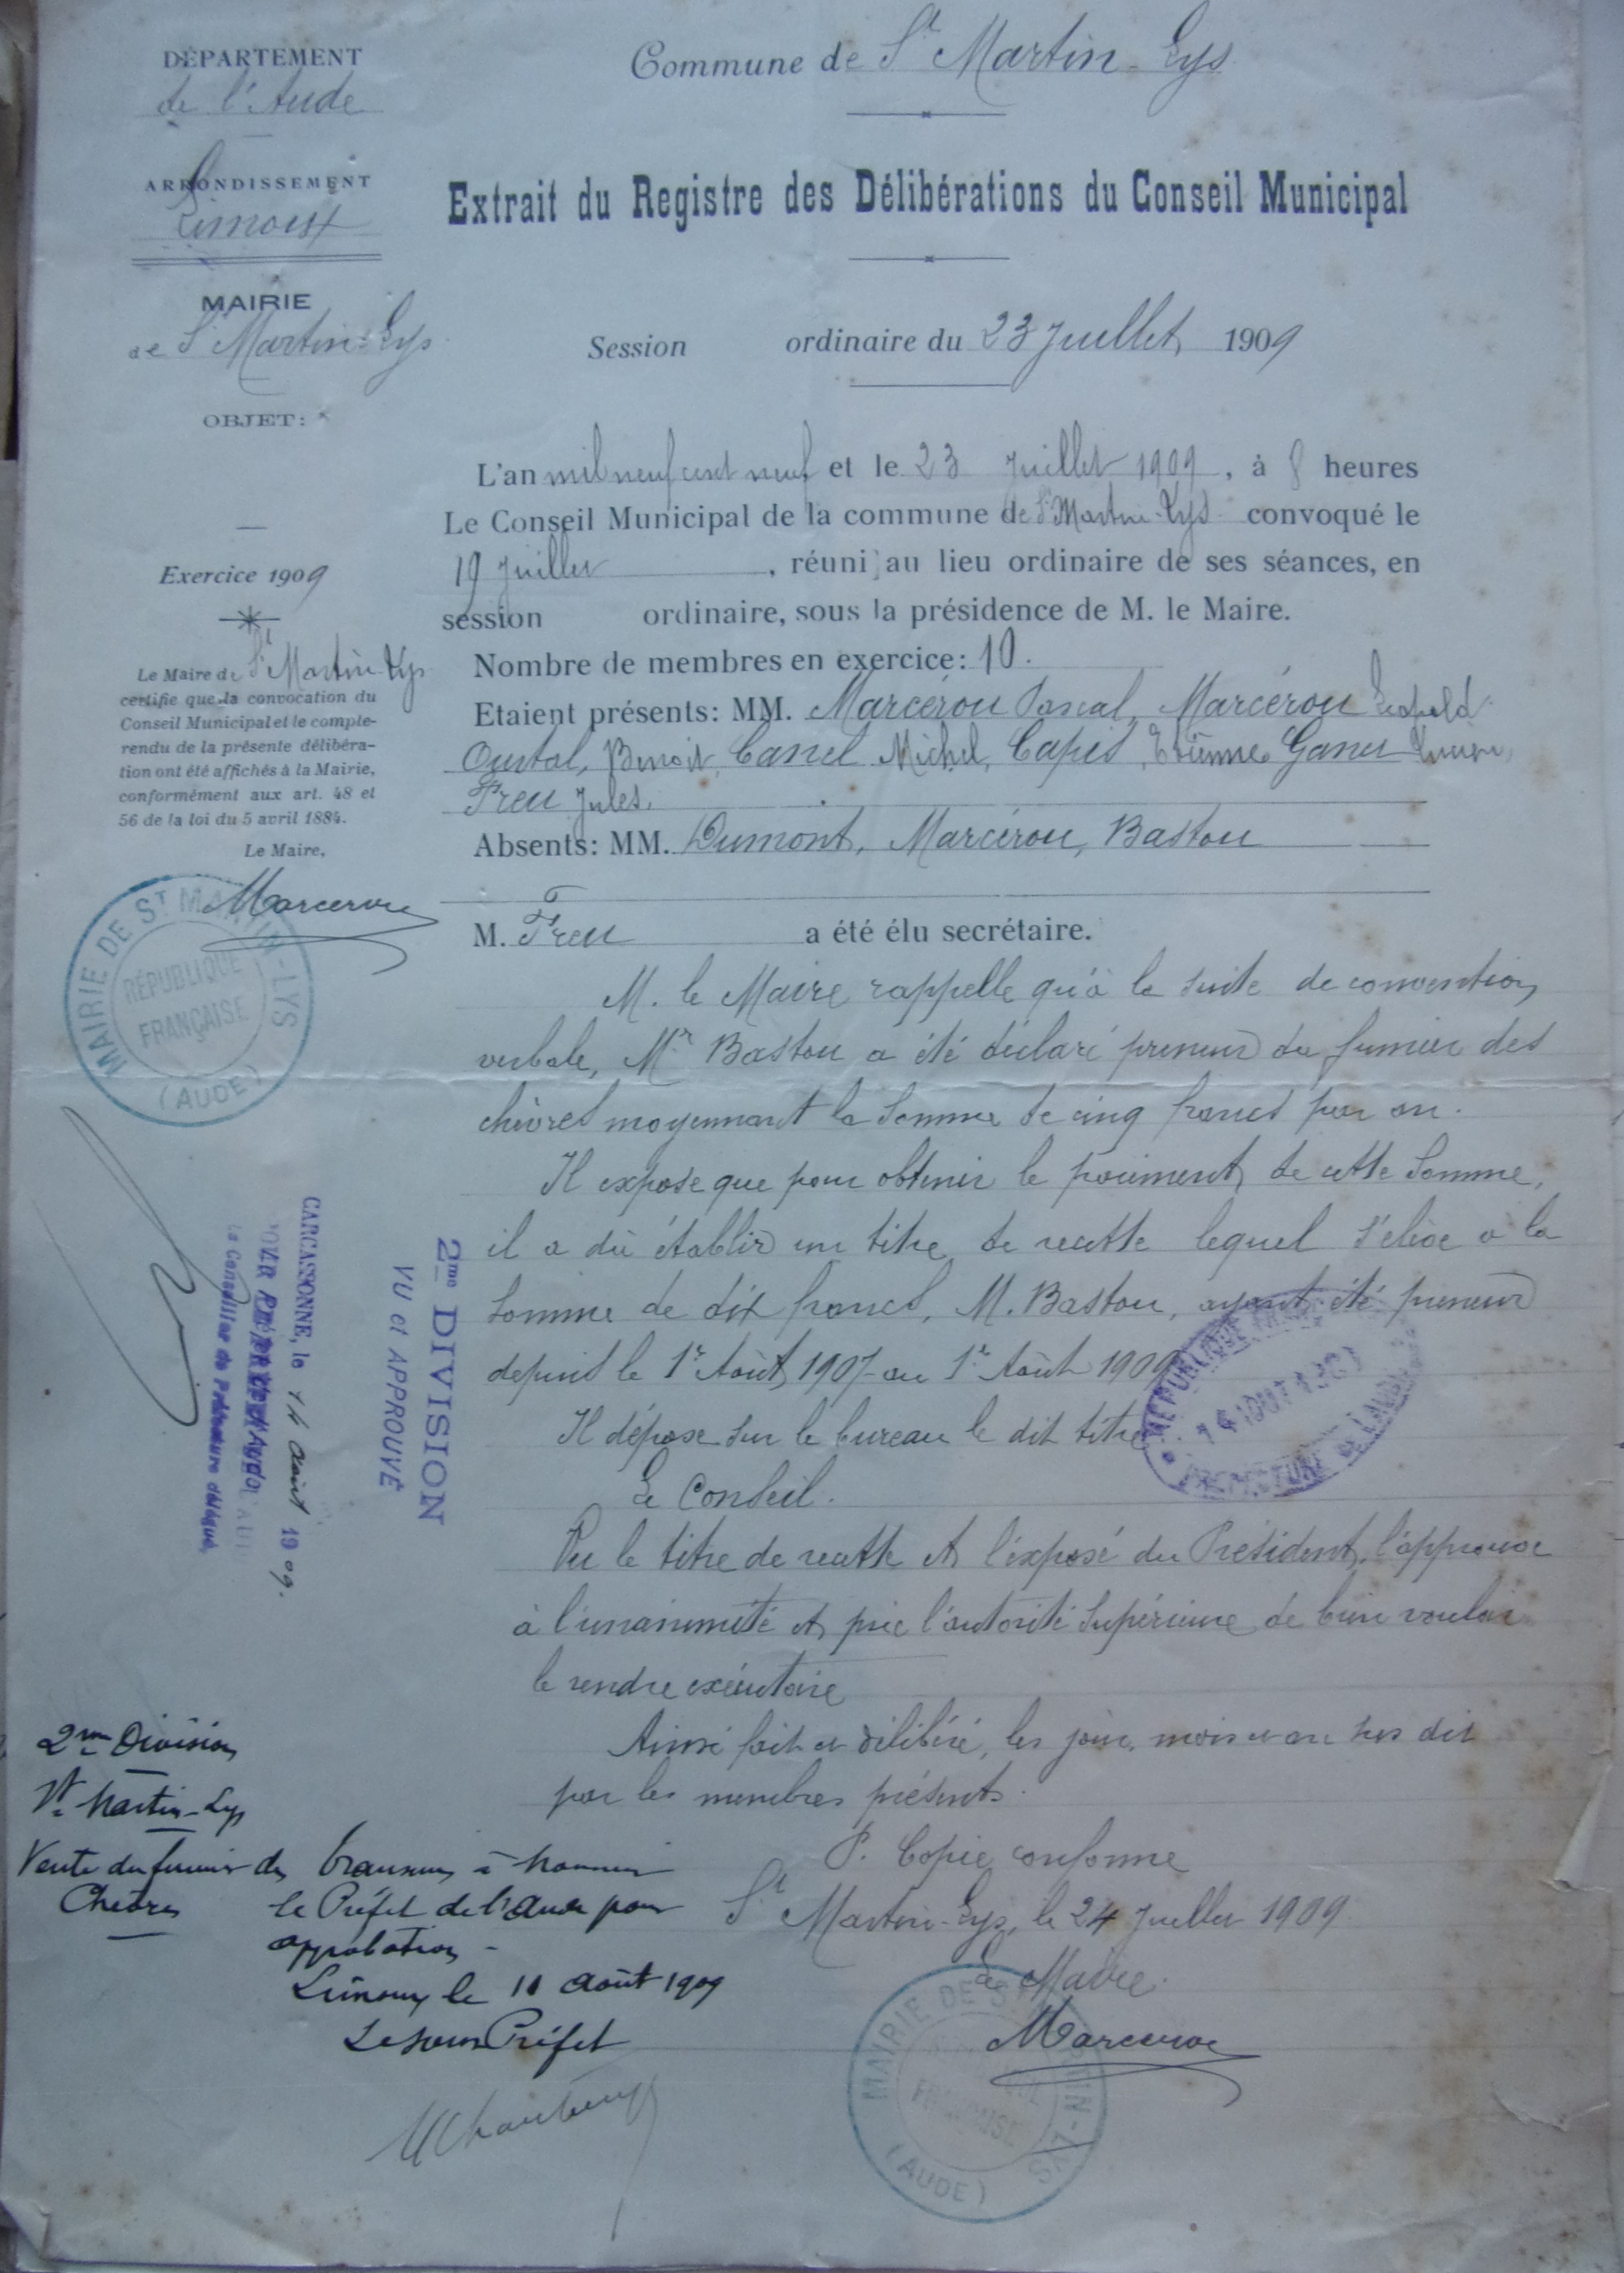 DÉPARTEMENT
de l'Aude
ARRONDISSEMENT
Limoux
MAIRIE
de St Martin-Lys
OBJET:
Exercice 1909
Le Maire de St Martin Lys
certifie que la convocation du
Conseil Municipal et le compte-
rendu de la présente délibéra-
tion ont été affichés à la Mairie,
conformément aux art. 48 et
56 de la loi du 5 avril 1884.
Le Maire,
Marcerou
MAIRIE DE ST MARTIN-LYS
RÉPUBLIQUE
FRANÇAISE
(AUDE)
Commune de St Martin-Lys
Extrait du Registre des Délibérations du Conseil Municipal
Session ordinaire du 23 Juillet 1909
L'an mil neuf cent neuf et le 23 Juillet 1909, à 8 heures
Le Conseil Municipal de la commune de St Martin-Lys convoqué le
19 Juillet, réuni au lieu ordinaire de ses séances, en
session ordinaire, sous la présidence de M. le Maire.
Nombre de membres en exercice: 10.
Etaient présents: MM. Marcérou Pascal, Marcérou Léopold
Oustal, Benoit, Canel Michel, Capis, Etienne
Freu Jules.
Absents: MM. Dumont, Marcérou, Baston
M. Freu a été élu secrétaire.
M. le Maire rappelle qu'à la suite de convention
verbale, Mr Baston a été déclaré preneur du fumier des
chèvres moyennant la somme de cinq francs par an.
Il expose que pour obtenir le paiement de cette somme,
il a dû établir un titre de recette lequel s'élève à la
somme de dix francs, M. Baston, ayant été preneur
depuis le 1er Août 1907 au 1er Août 1909
Il dépose sur le bureau le dit titre
Le Conseil.
Vu le titre de recette et l'exposé du Président, l'approuve
à l'unanimité et prie l'autorité supérieure de bien vouloir
le rendre exécutoire
Ainsi fait et délibéré, les jour, mois et an sus dit
par les membres présents.
P. Copie conforme
St Martin-Lys, le 24 Juillet 1909
Le Maire.
Marcerou
MAIRIE DE ST MARTIN-LYS
FRANÇAISE
(AUDE)
RÉPUBLIQUE FRANÇAISE
14 AOUT 190
PRÉFECTURE DE L'AUDE
2me DIVISION
VU et APPROUVÉ
CARCASSONNE, le 14 août 1909.
Le Conseiller de Préfecture délégué,
2me Division
St Martin-Lys
Vente du fumier des
Chèvres
Transmis à Monsieur
le Préfet de l'Aude pour
approbation -
Limoux le 11 Août 1909
Le sous Préfet